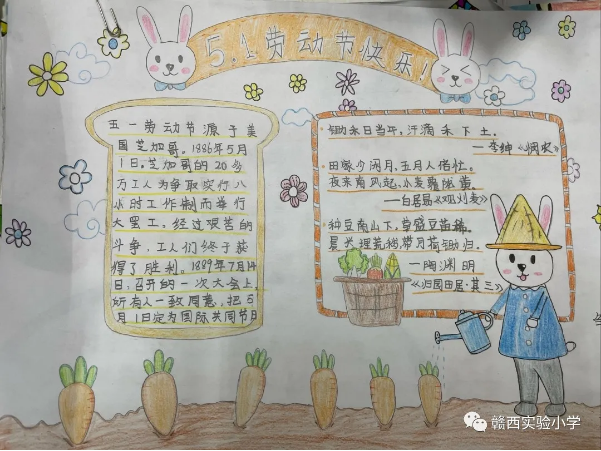 5.1劳动节快乐!
五一劳动节源于美
国芝加哥。1886年5月
1日,芝加哥的20多
万工人为争取实行八
小时工作制而举行
大罢工。经过艰苦的
斗争,工人们终于获
得了胜利。1889年7月14
日,召开的一次大会上,
所有人一致同意,把5
月1日定为国际共同节日
锄禾日当午,汗滴禾下土。
—李绅《悯农》
田家少闲月,五月人倍忙。
夜来南风起,小麦覆陇黄。
—白居易《观刈麦》
种豆南山下,草盛豆苗稀。
晨兴理荒秽带月荷锄归。
—陶渊明
《归园田居·其三》
赣西实验小学